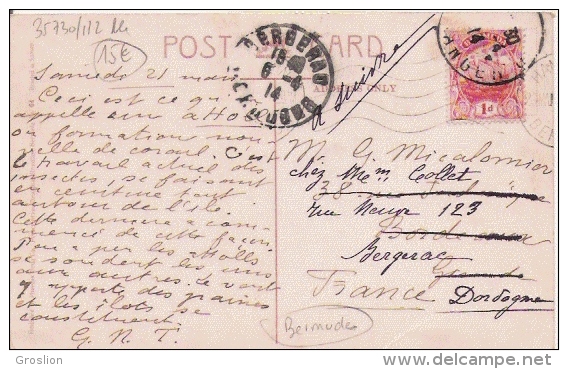 35730/112
15€
POST CARD
ADDRESS ONLY
BERGERAC
6 -4
14
DORDOGNE
1d
à suivre
Samedi 21 mars
Ceci est ce qu'on
appelle un atoll
ou formation nou-
velle de corail. C'est
le travail actuel des
insectes se faisant
en ceinture tout
autour de l'île.
Cette dernière a com-
mencé de cette façon
peu à peu les atolls
se soudent les uns
aux autres. le vent
y apporte des graines
et les îlots se
constituent.
G. N. T.
M. G. Micalomier
chez Mme Collet
38 rue
rue Neuve 123
Bordeaux
Bergerac
Gironde
France Dordogne
Bermudes
Groslion
www.delcampe.net